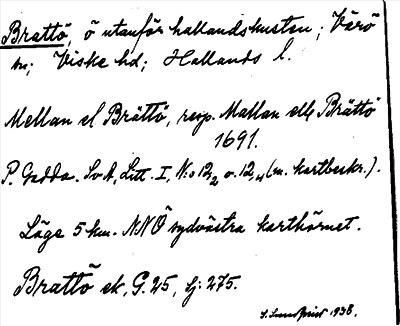 Brattö, ö utanför hallandskusten; Värö
sn; Viske hd; Hallands l.
Mellan el Brättö, resp. Mallan elle Brättö
1691.
P. Gedda. SvA, Litt. I, N:o 12,2 o. 12,4 (m. kartbeskr.).
Läge 5 km. NNÖ sydvästra karthörnet.
Brattö ek, G. 25, lj: 275.
1938.